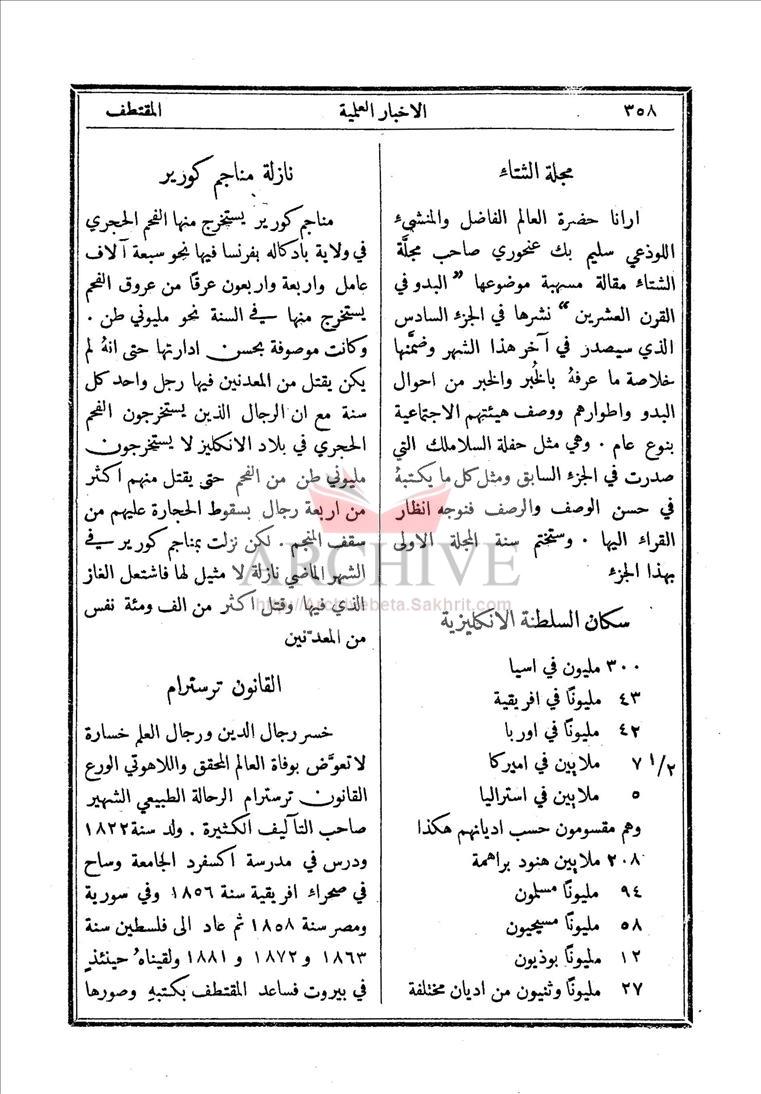 ٣٥٨
الاخبار العلمية
المقتطف
مجلة الشتاء
ارانا حضرة العالم الفاضل والمنشيء
اللوذعي سليم بك عنحوري صاحب مجلَّة
الشتاء مقالة مسهبة موضوعها " البدو في
القرن العشرين " نشرها في الجزء السادس
الذي سيصدر في آخر هذا الشهر وضمَّنها
خلاصة ما عرفهُ بالخُبر والخبر من احوال
البدو واطوارهم ووصف هيئتهم الاجتماعية
بنوع عام . وهي مثل حفلة السلاملك التي
صدرت في الجزء السابق ومثل كل ما يكتبهُ
في حسن الوصف والرصف فنوجه انظار
القراء اليها . وستختم سنة المجلة الاولى
بهذا الجزء
سكان السلطنة الانكليزية
٣٠٠ مليون في اسيا
٤٣ مليونًا في افريقية
٤٢ مليونًا في اوربا
٧ ١/٢ ملايين في اميركا
٥ ملايين في استراليا
وهم مقسومون حسب اديانهم هكذا
٢٠٨ ملايين هنود براهمة
٩٤ مليونًا مسلمون
٥٨ مليونًا مسيحيون
١٢ مليونًا بوذيون
٢٧ مليونًا وثنيون من اديان مختلفة
نازلة مناجم كورير
مناجم كورير يستخرج منها الفحم الحجري
في ولاية بادكاله بفرنسا فيها نحو سبعة آلاف
عامل واربعة واربعون عرقًا من عروق الفحم
يستخرج منها في السنة نحو مليوني طن .
وكانت موصوفة بحسن ادارتها حتى انهُ لم
يكن يقتل من المعدنين فيها رجل واحد كل
سنة مع ان الرجال الذين يستخرجون الفحم
الحجري في بلاد الانكليز لا يستخرجون
مليوني طن من الفحم حتى يقتل منهم اكثر
من اربعة رجال بسقوط الحجارة عليهم من
سقف المنجم . لكن نزلت بمناجم كورير في
الشهر الماضي نازلة لا مثيل لها فاشتعل الغاز
الذي فيها وقتل اكثر من الف ومئة نفس
من المعدّنين
القانون ترسترام
خسر رجال الدين ورجال العلم خسارة
لا تعوَّض بوفاة العالم المحقق واللاهوتي الورع
القانون ترسترام الرحالة الطبيعي الشهير
صاحب التآليف الكثيرة . ولد سنة ١٨٢٢
ودرس في مدرسة اكسفرد الجامعة وساح
في صحراء افريقية سنة ١٨٥٦ وفي سورية
ومصر سنة ١٨٥٨ ثم عاد الى فلسطين سنة
١٨٦٣ و ١٨٧٢ و ١٨٨١ ولقيناهُ حينئذٍ
في بيروت فساعد المقتطف بكتبهِ وصورها
ARCHIVE
http://Archivebeta.Sakhrit.com